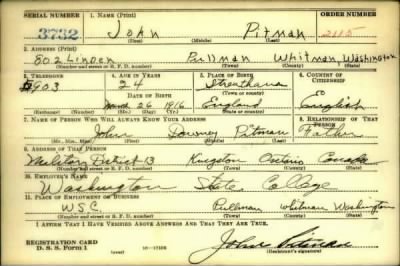 SERIAL NUMBER 1. NAME (Print) ORDER NUMBER
3732 John Pitman 2115
(First) (Middle) (Last)
2. ADDRESS (Print)
802 Linden Pullman Whitman Washington
(Number and street or R. F. D. number) (Town) (County) (State)
3. TELEPHONE 4. AGE IN YEARS 5. PLACE OF BIRTH 6. COUNTRY OF CITIZENSHIP
8903 24 Streatham
DATE OF BIRTH (Town or county)
March 26 1916 England English
(Exchange) (No.) (Mo.) (Day) (Yr.) (State or country)
7. NAME OF PERSON WHO WILL ALWAYS KNOW YOUR ADDRESS 8. RELATIONSHIP OF THAT PERSON
John Downey Pitman Father
(Mr., Mrs., Miss) (First) (Middle) (Last)
9. ADDRESS OF THAT PERSON
Military District 13 Kingston Ontario Canada
(Number and street or R. F. D. number) (Town) (County) (State)
10. EMPLOYER'S NAME
Washington State College
11. PLACE OF EMPLOYMENT OR BUSINESS
W.S.C. Pullman Whitman Washington
(Number and street or R. F. D. number) (Town) (County) (State)
I AFFIRM THAT I HAVE VERIFIED ABOVE ANSWERS AND THAT THEY ARE TRUE.
REGISTRATION CARD
D. S. S. Form 1 John Pitman
(Registrant's signature)